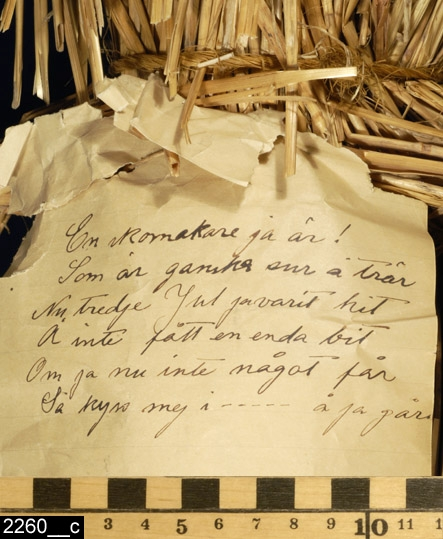 En skomakare ja är!
Som är ganska sur å tvär
Nu, tredje Jul ja varit hit
Å inte fått en enda bit
Om ja nu inte något får
Så kyss mej i ----- å ja går.
2260__c 3 4 5 6 7 8 9 10 11 1